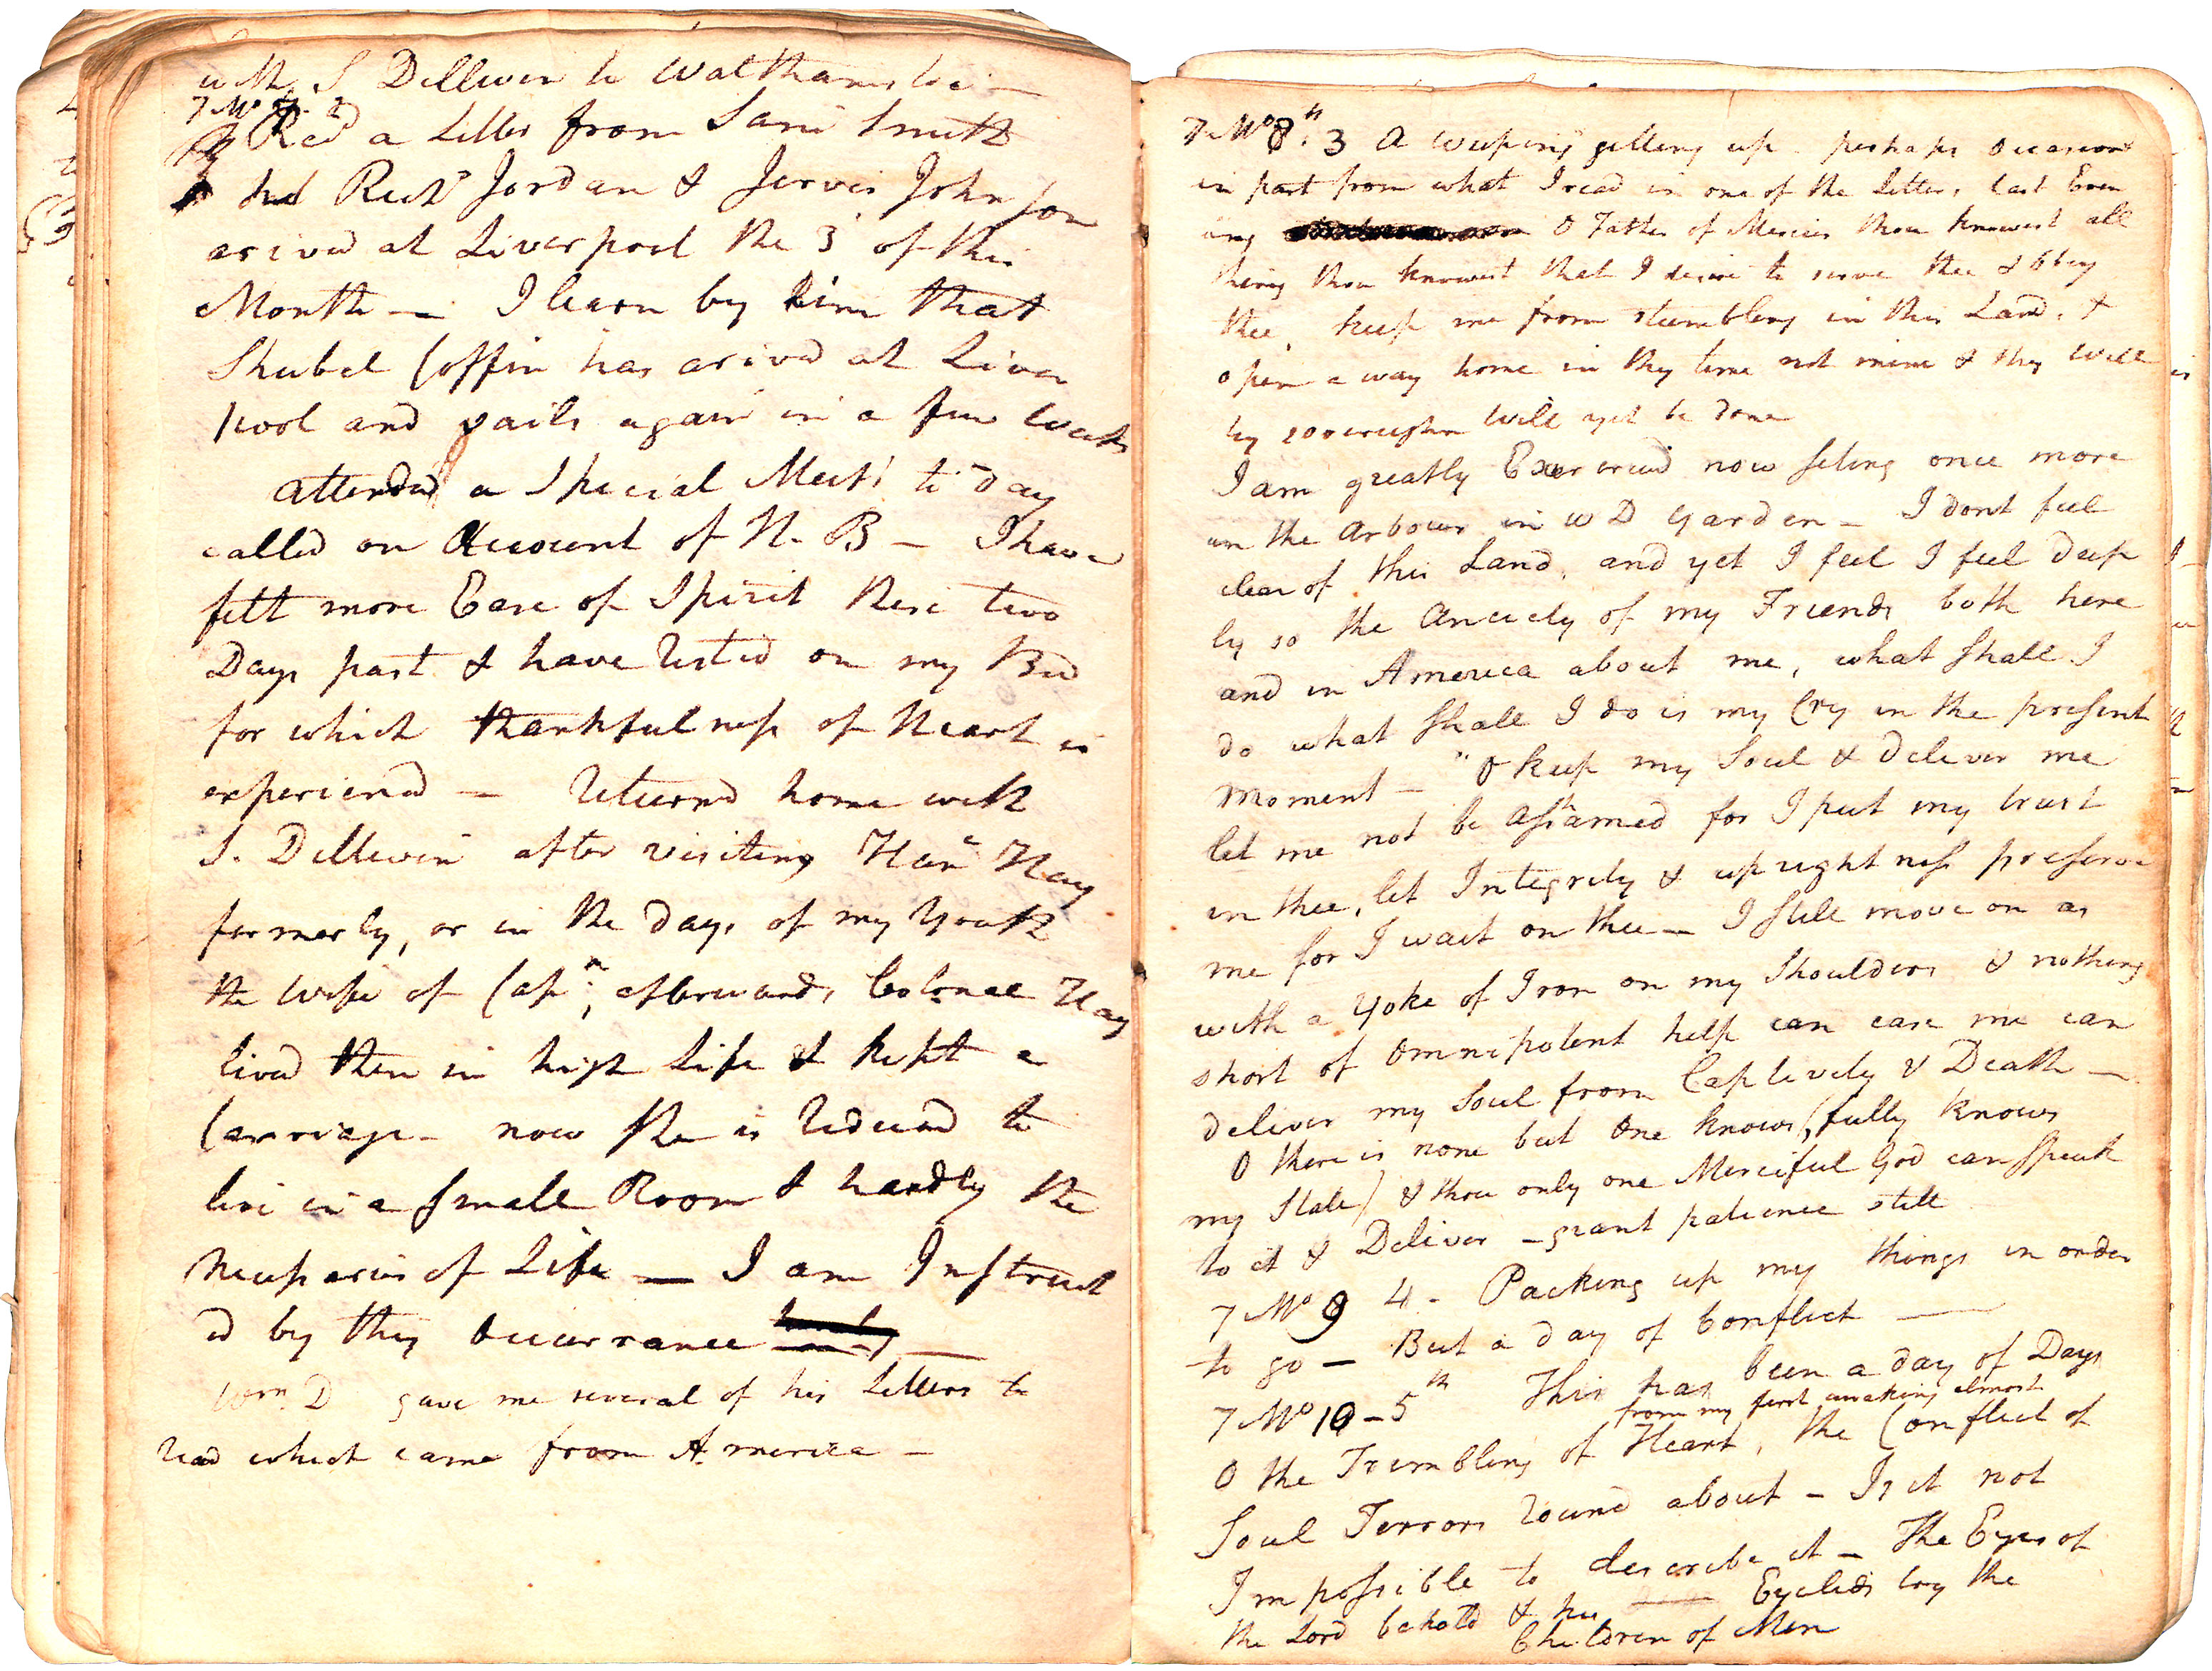 with S Dillwin to Walthamstoe —
7 Mo 7. 2
Recd a Letter from Saml Smith
Richd Jordan & Jervis Johnson
arived at Liverpool the 3 of this
Month — I learn by him that
Shubel Coffin has arived at Liver
pool and sails again in a few Weeks
attended a Special Meetg to day
called on Account of N. B — I have
felt more Ease of Spirit these two
Days past & have Rested on my Bed
for which thankfulness of Heart is
experiencd — Returnd home with
S. Dillwin after visiting Hanh Hay
formerly, or in the days of my Youth
the wife of Capn; afterwards Colonal Hay
lived then in high Life & kept a
Carriage — now she is Reducd to
live in a small Room & hardly the
Necessaries of Life — I am Instruct
ed by this Occurrance —
Wm D gave me several of his Letters to
read which came from America —
7 Mo 8th. 3 A weeping getting up perhaps occasiond
in part from what I read in one of the Letters, last Even
ing O Father of Mercies thou knowest all
things thou knowest that I desire to serve thee & obey
thee, keep me from stumbling in this Land, &
open a way home in thy time not mine & thy Will
by Will yet be done
I am greatly Exercised now seting once more
in the Arbour in W D Garden — I dont feel
clear of this Land, and yet I feel I feel deep
ly so the Anxiety of my Friends both here
and in America about me, what shall I
do what shall I do is my Cry in the present
moment — "O keep my Soul & deliver me
let me not be ashamed for I put my trust
in thee, let Integrity & uprightness preserve
me for I wait on thee — I still move on as
with a yoke of Iron on my Shoulders & nothing
short of Omnipotent help can ease me can
deliver my Soul from Captivity & Death —
O there is none but One knows (fully knows
my State) & thou only one Merciful God can speak
to it & Deliver — grant patience still
7 Mo 9 4 - Packing up my things in order
to go — But a day of Conflict —
7 Mo 10 - 5th This has been a day of Days
from my first awaking almost
O the Trembling of Heart, the Conflict of
Soul Terrors Round about — Is it not
Impossible to describe it — The Eyes of
the Lord behold & his Eyelids try the
Children of Men